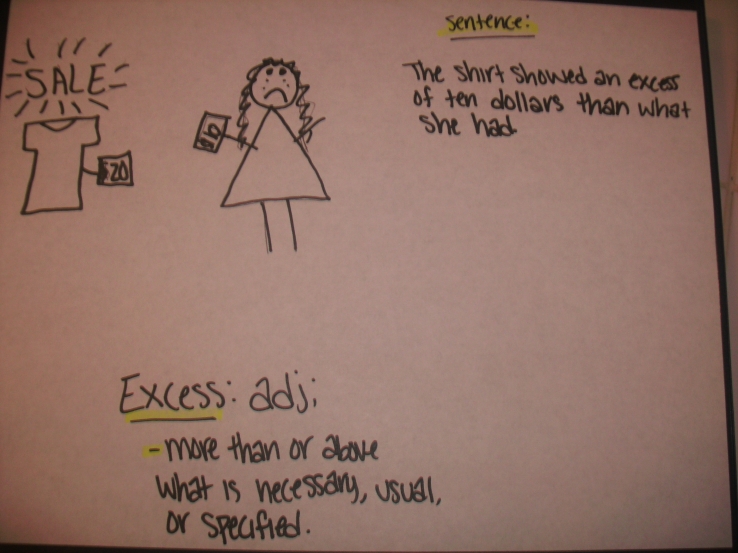 SALE
$20
sentence:
The shirt showed an excess
of ten dollars than what
she had.
Excess: adj;
-more than or above
what is necessary, usual,
or specified.